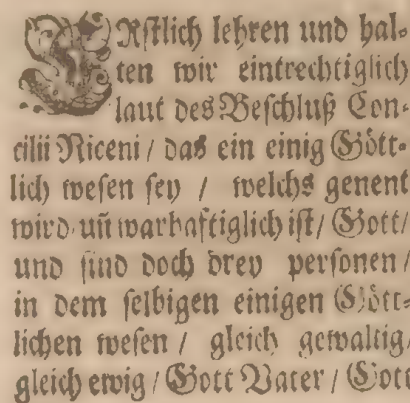 ERſtlich lehren und hal-
ten wir eintrechtiglich
laut des Beſchluß Con-
cilii Niceni / das ein einig Gött-
lich weſen ſey / welchs genent
wird uñ warhaftiglich iſt / Gott /
und ſind doch drey perſonen /
in dem ſelbigen einigen Gött-
lichen weſen / gleich gewaltig /
gleich ewig / Gott Vater / Gott